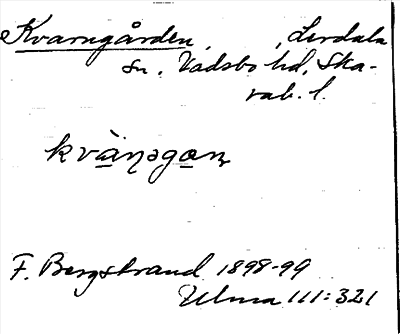 Kvarngården, Lerdala
sn. Vadsbo hd, Ska-
rab. l.
kvàṇəgoṇ
F. Bergstrand 1898-99
Ulma 111:321